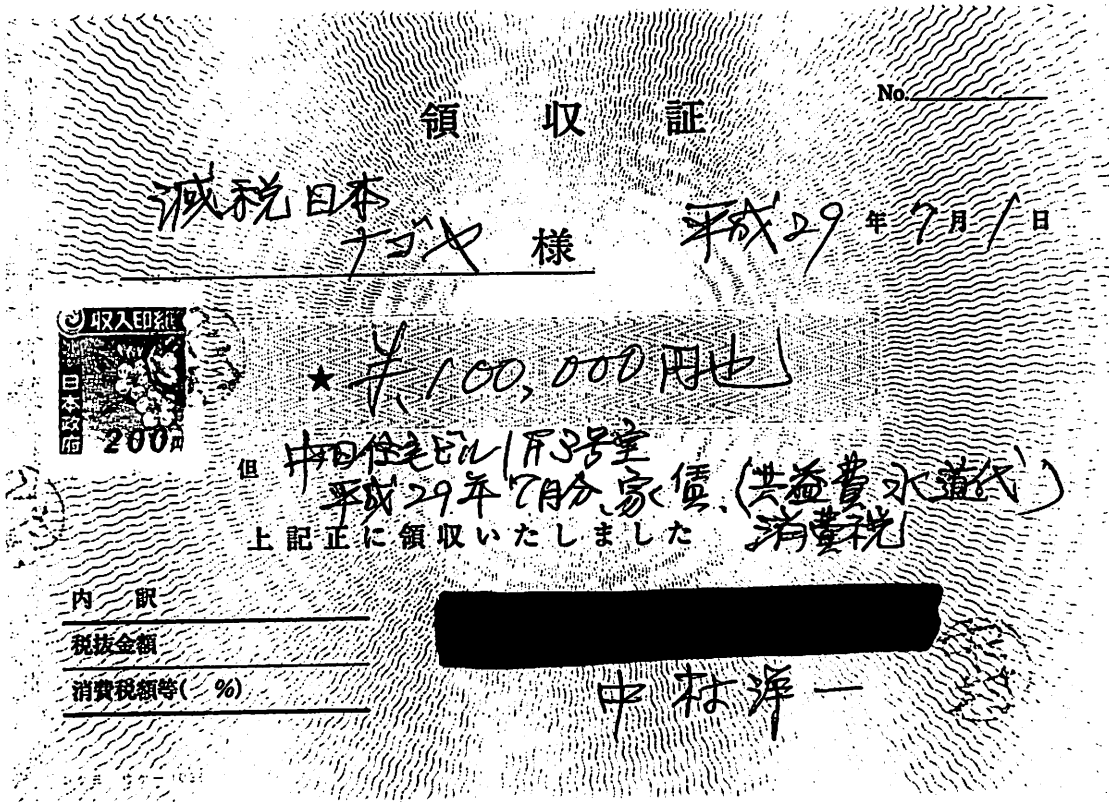 No.
領収証
減税日本
ナゴヤ 様
平成29年7月1日
収入印紙
日本政府
200円
★ ¥100,000円也
但 中日住宅ビル1F3号室
平成29年7月分家賃、(共益費水道代)
消費税
上記正に領収いたしました
内訳
税抜金額
消費税額等( %)
中村洋一